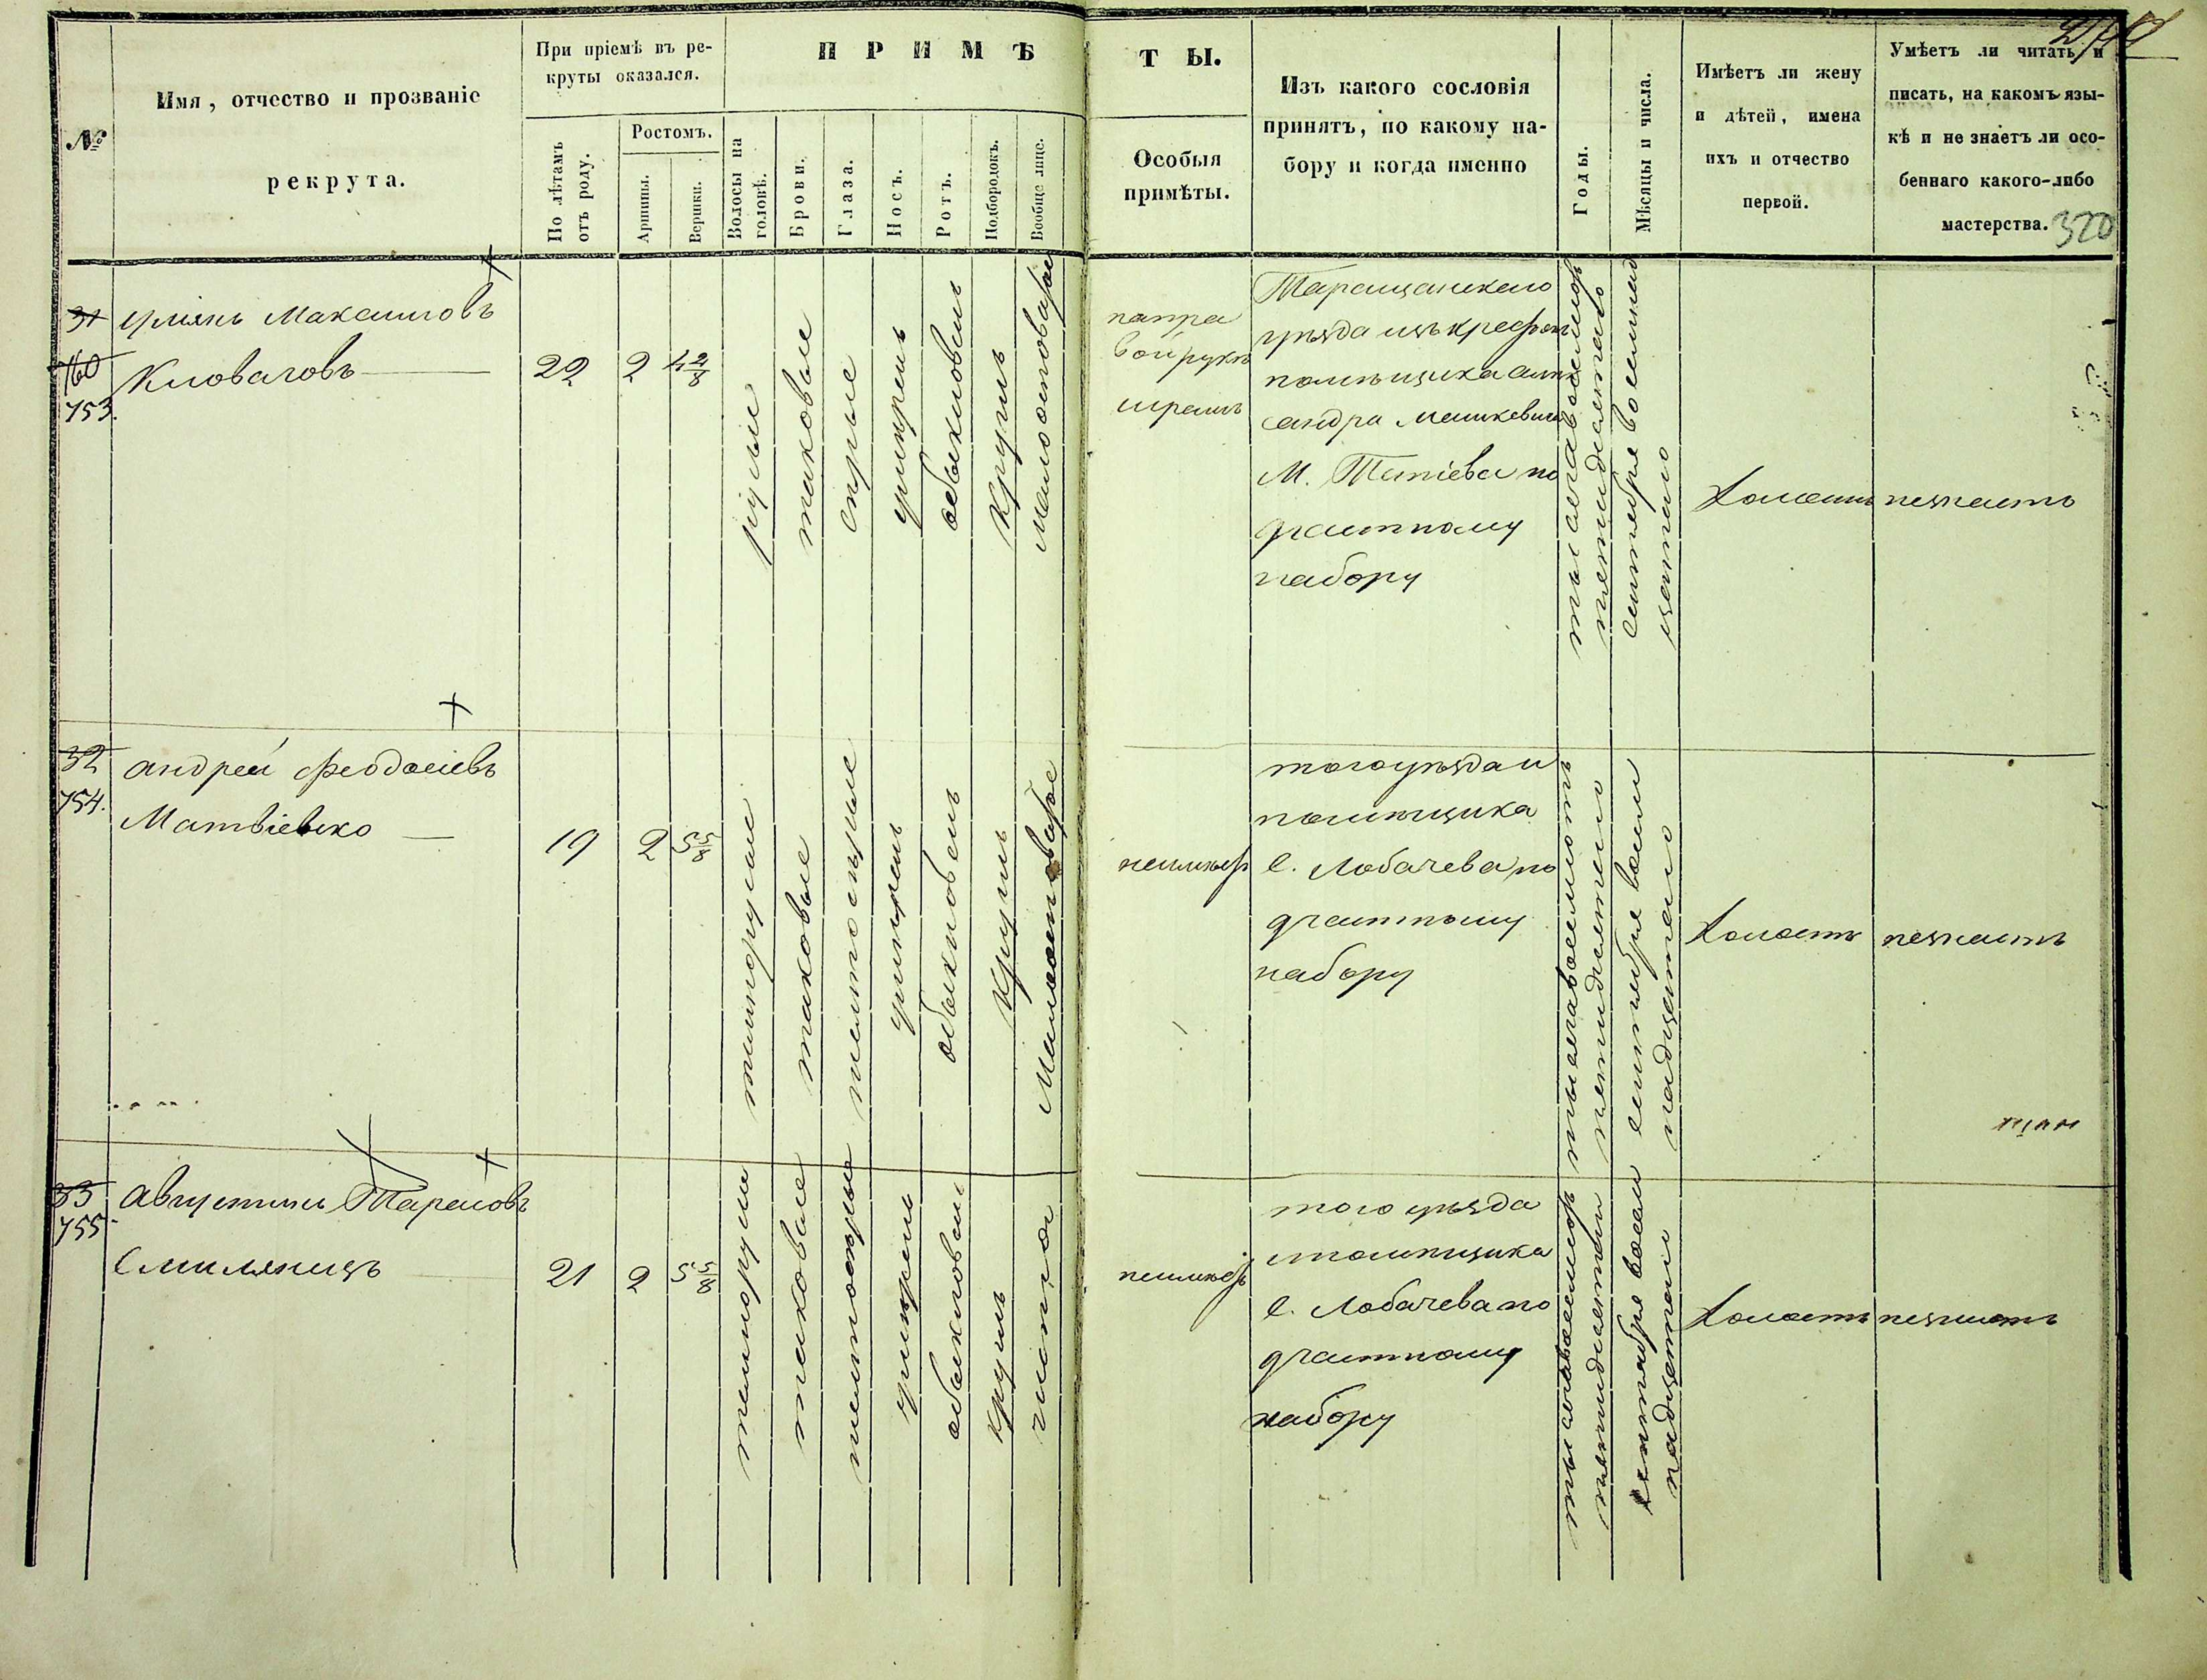 №
Имя, отчество и прозваніе
рекрута.
При пріемѣ въ ре-
круты оказался.
По лѣтамъ
отъ роду.
Ростомъ.
Аршины.
Вершки.
ПРИМѢ
Волосы на
головѣ.
Брови.
Глаза.
Носъ.
Ротъ.
Подбородокъ.
Вообще лице.
ТЫ.
Особыя
примѣты.
Изъ какого сословія
принятъ, по какому на-
бору и когда именно
Годы.
Мѣсяцы и числа.
Имѣетъ ли жену
и дѣтей, имена
ихъ и отчество
первой.
Умѣетъ ли читать и
писать, на какомъ язы-
кѣ и не знаетъ ли осо-
беннаго какого-либо
мастерства.
320
31
760
753.
Максимовъ
22
2
4 2/8
русые
таковые
сѣрые
умѣренъ
обыкновенъ
круглъ
на пра
вой рукѣ
шрамъ
Таращанскаго
уѣзда изъ крестьян
помѣщика Алек
сандра
М. Тетіева по
частному
набору
тысяча восемьсотъ
пятидесятаго
сентября восемнад
цатаго
холостъ
незнаетъ
32
754.
Андрей Феодосіевъ
Матвіенко
19
2
5 5/8
темнорусые
таковые
желтосѣрые
умѣренъ
обыкновенъ
круглъ
неимѣет
того уѣзда и
помѣщика
с. Лобачева по
частному
набору
тысяча восемьсотъ
пятидесятаго
сентября восем
надцатаго
холостъ
незнаетъ
33
755
Августинъ Тарасовъ
Смилянецъ
21
2
5 5/8
темнорусые
таковые
желтосѣрые
умѣренъ
обыкновенъ
круглъ
чистое
неимѣет
того уѣзда
и помѣщика
с. Лобачева по
частному
набору
тысяча восемьсот
пятидесятаго
сентября восем
надцатаго
холостъ
незнаетъ